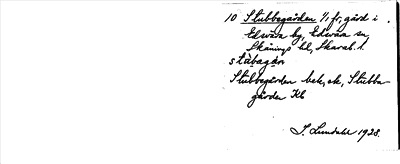 10 Stubbegården 1/1 fr, gård i
Edsvära by, Edsvära sn,
Skånings hd, Skarab. l.
stùbagán
Stubbegården bek, ek, Stubba-
gården Kb
J. Lundahl 1928.